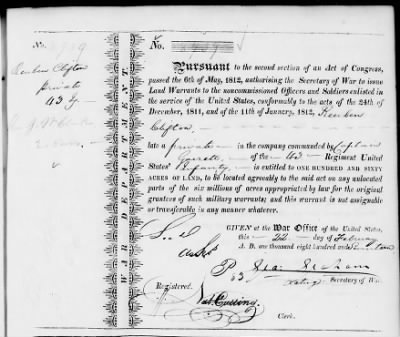 No.
Reuben Clifton
Private
43d
WAR DEPARTMENT.
No.
Pursuant to the second section of an Act of Congress,
passed the 6th of May, 1812, authorising the Secretary of War to issue
Land Warrants to the noncommissioned Officers and Soldiers enlisted in
the service of the United States, conformably to the acts of the 24th of
December, 1811, and of the 11th of January, 1812, Reuben
Clifton
late a private in the company commanded by Captain
of the 43 Regiment United
States' Infantry is entitled to ONE HUNDRED AND SIXTY
ACRES OF LAND, to be located agreeably to the said act on any unlocated
part of the six millions of acres appropriated by law for the original
grantees of such military warrants; and this warrant is not assignable
or transferable in any manner whatever.
GIVEN at the War Office of the United States,
this 22 day of February
A. D. one thousand eight hundred and
Geo: Graham
acting Secretary of War
Registered.
Nat. Cutting
Clerk.